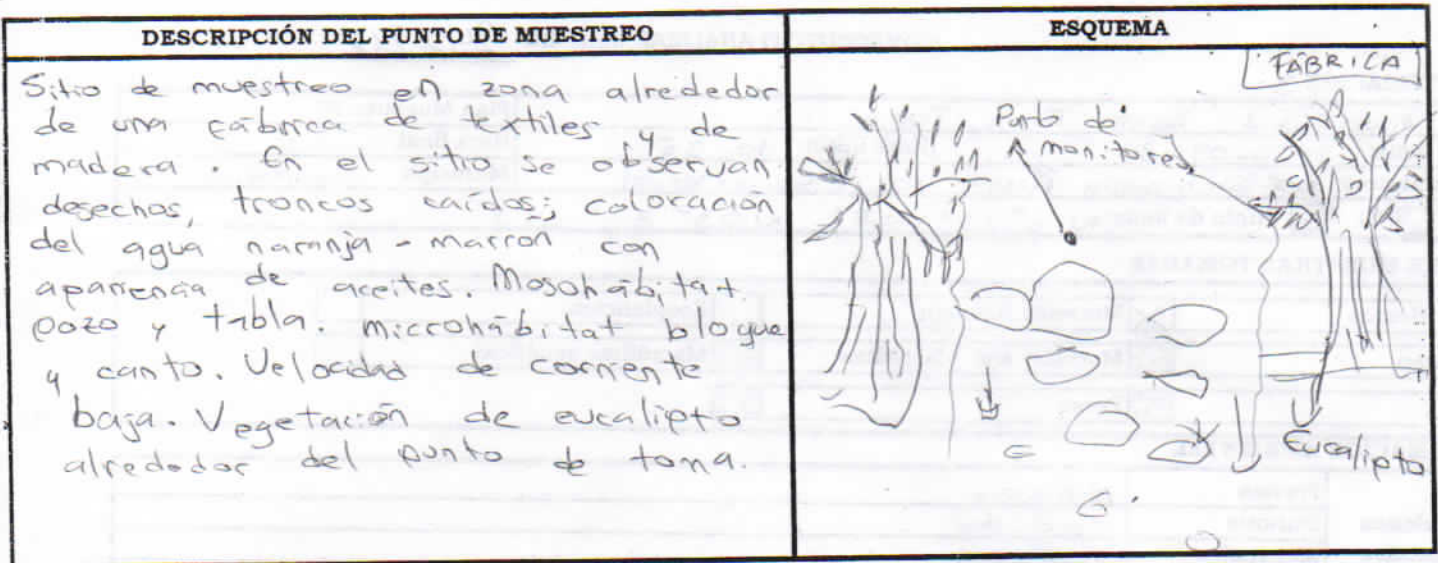 DESCRIPCIÓN DEL PUNTO DE MUESTREO
Sitio de muestreo en zona alrededor
de una fábrica de textiles y de
madera. En el sitio se observan
desechos, troncos caídos; coloración
del agua naranja - marron con
apariencia de aceites. Mosohábitat
pozo y tabla. microhábitat bloque
y canto. Velocidad de corriente
baja. Vegetación de eucalipto
alrededor del punto de toma.
ESQUEMA
FÁBRICA
Punto de
monitoreo
Eucalipto